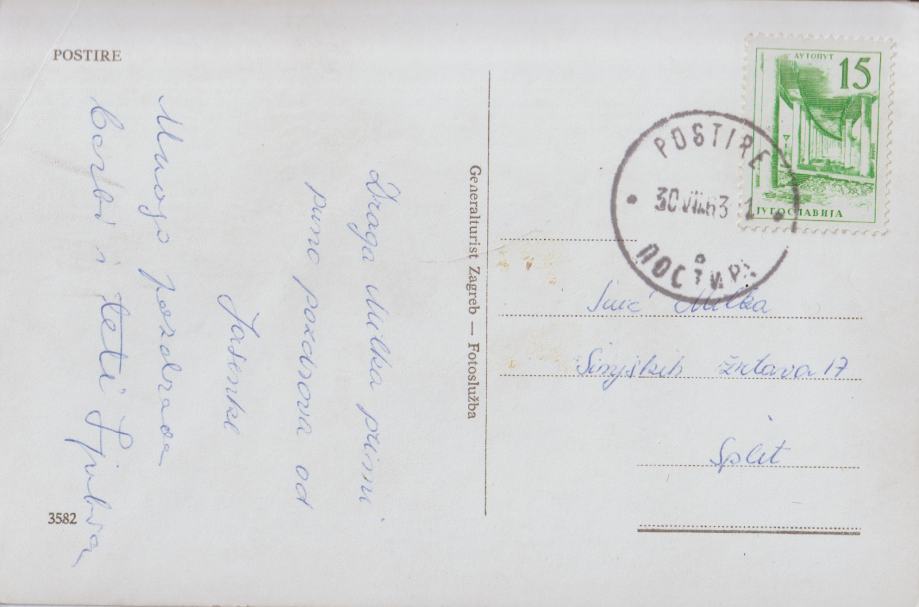 POSTIRE
Draga Milka primi
puno pozdrava od
Jasenke
Mnogo pozdrava
barbi i teti
3582
Generalturist Zagreb — Fotoslužba
АУТОПУТ
15
ЈУГОСЛАВИЈА
POSTIRE
30 VII 63
ПОСТИРА
Milka
žrtava 17
Split